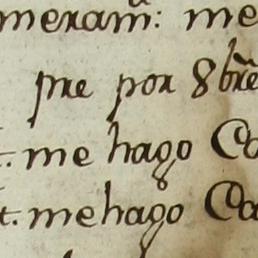 meram: me
pre por 8bre
t. me hago Co
t. me hago Co